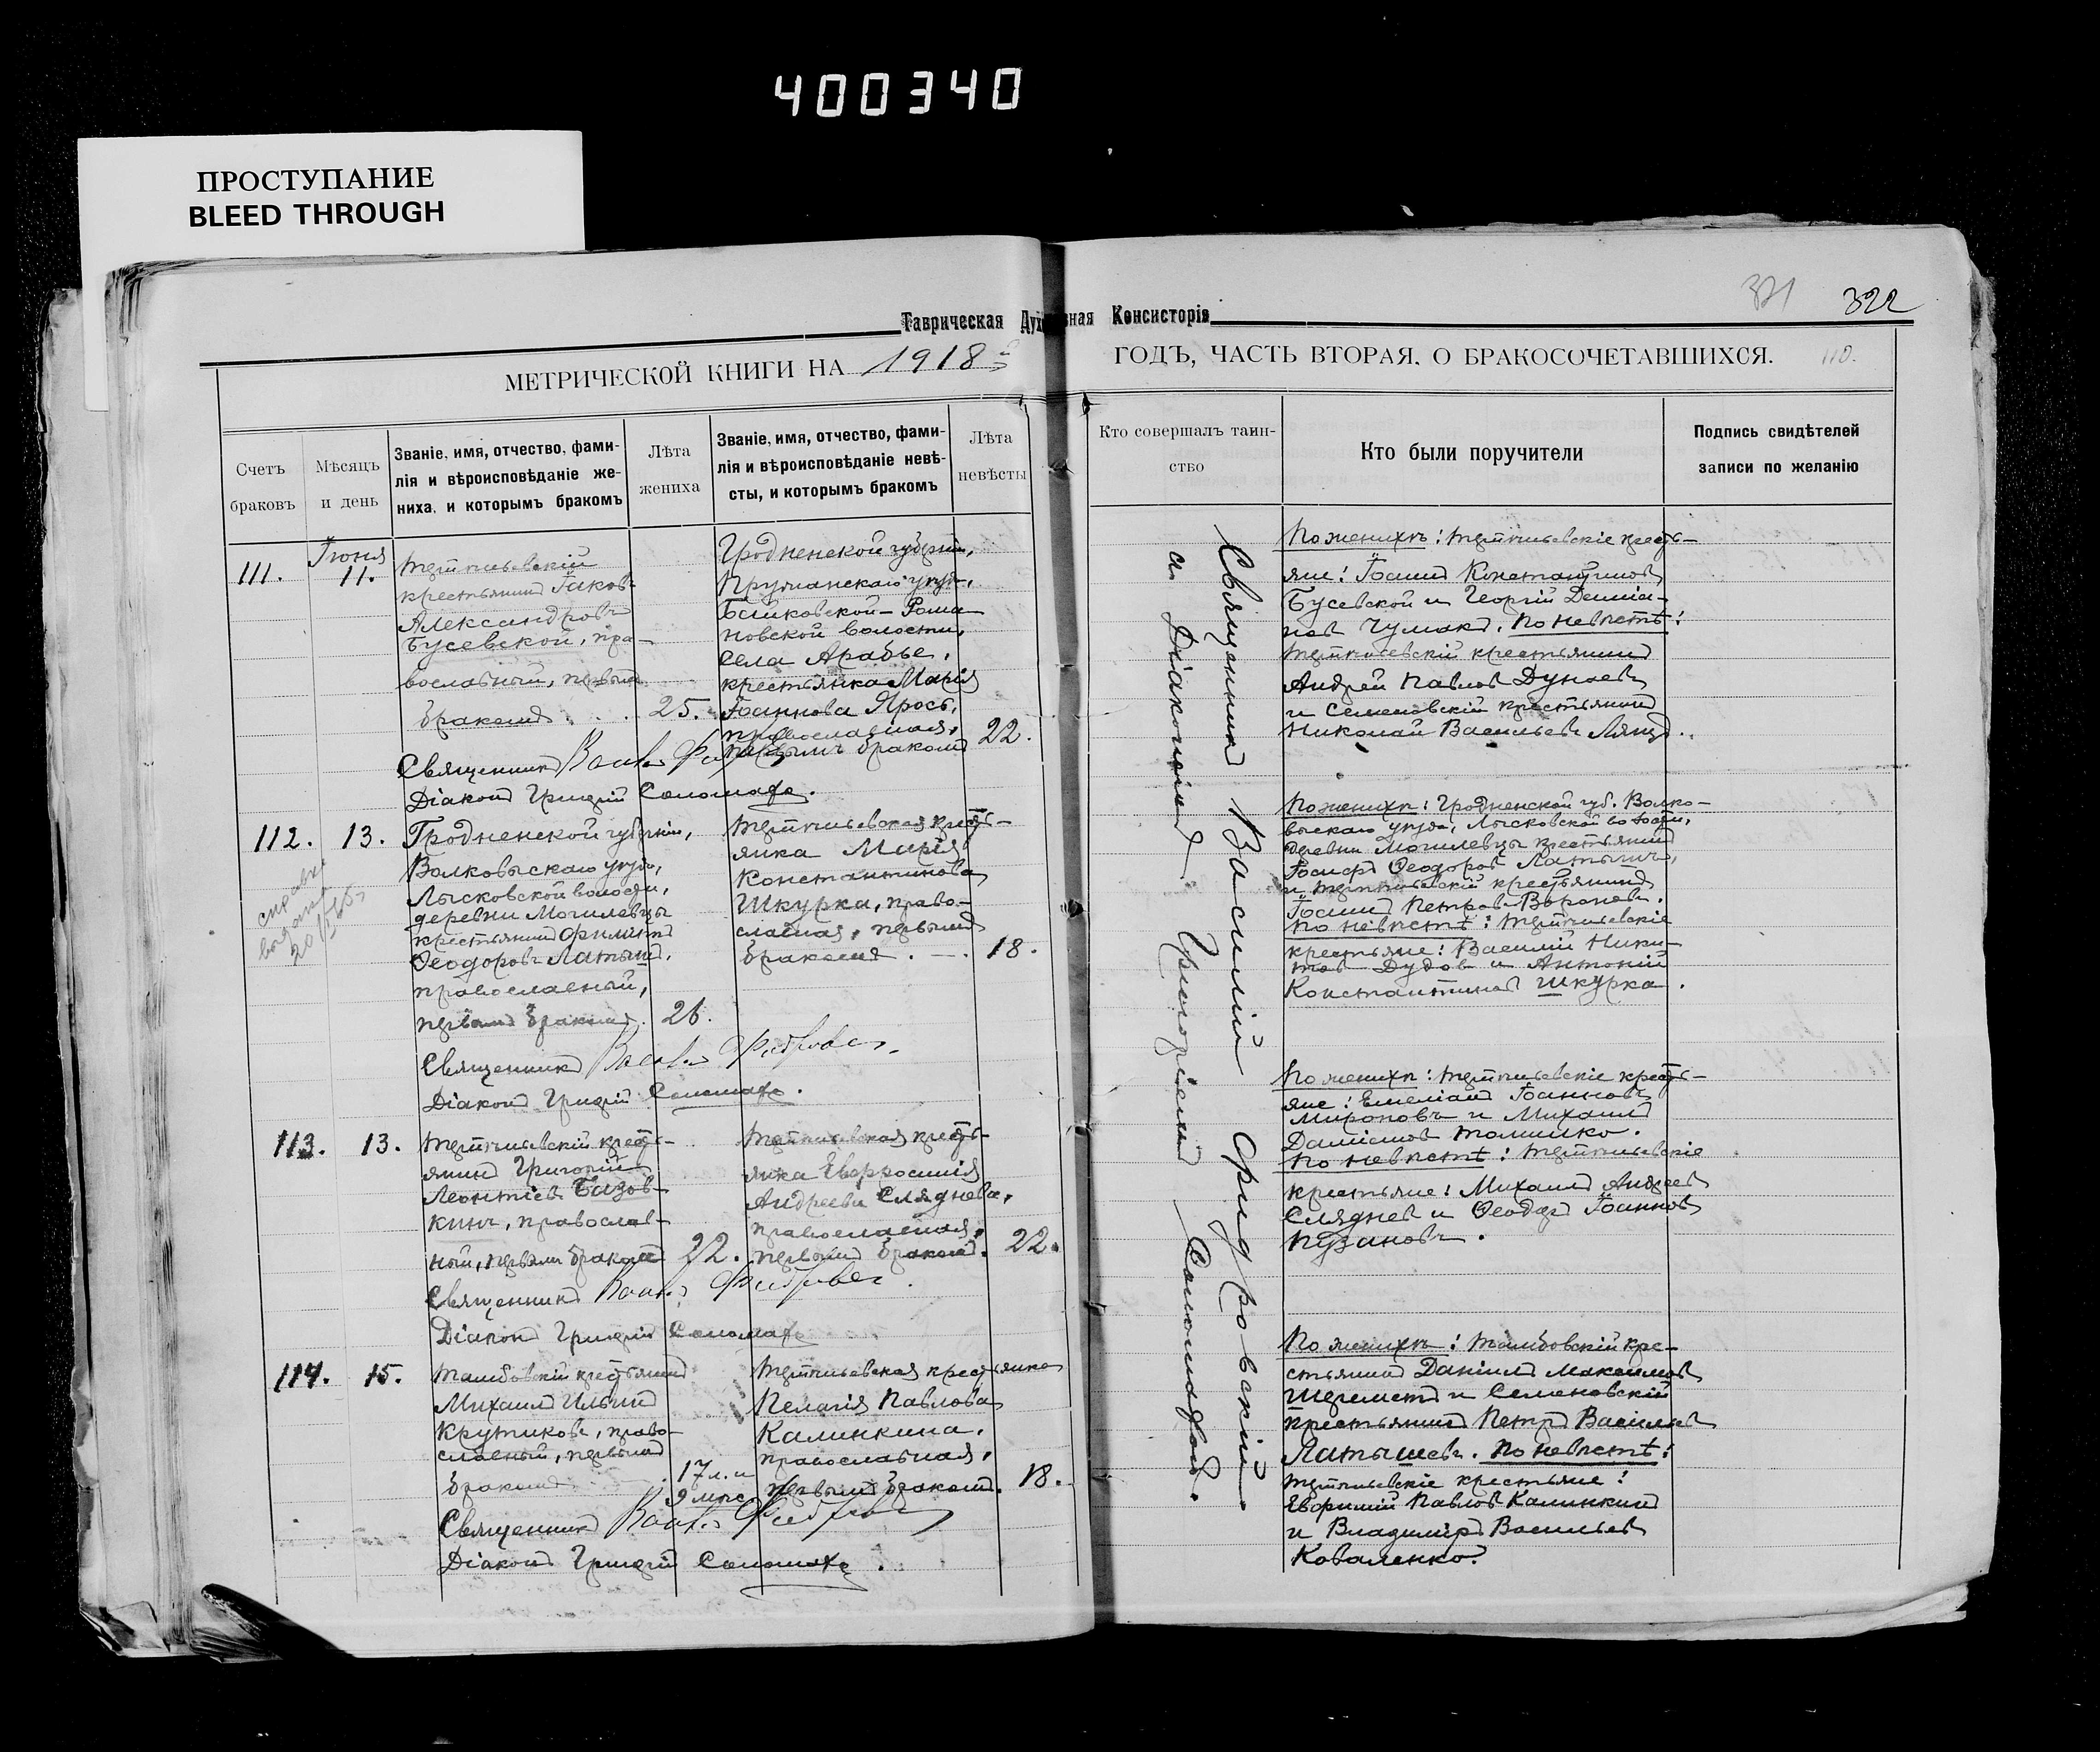 400340
ПРОСТУПАНИЕ
BLEED THROUGH
321 322
Таврическая Духовная Консисторія
МЕТРИЧЕСКОЙ КНИГИ НА 1918 ГОДЪ, ЧАСТЬ ВТОРАЯ, О БРАКОСОЧЕТАВШИХСЯ.
110.
Счетъ браковъ
Мѣсяцъ и день
Званіе, имя, отчество, фами-
лія и вѣроисповѣданіе же-
ниха, и которымъ бракомъ
Лѣта жениха
Званіе, имя, отчество, фами-
лія и вѣроисповѣданіе невѣ-
сты, и которымъ бракомъ
Лѣта невѣсты
Кто совершалъ таин-
ство
Кто были поручители
Подпись свидѣтелей
записи по желанію
111.
Іюня
11.
крестьянинъ Іаковъ
Александровъ
Бусевской, пра-
вославный, первымъ
бракомъ
25.
Гродненской губерніи,
Пружанскаго уѣзда,
новской волости,
села
крестьянка Марія
Іоаннова Ярось,
православная,
первымъ бракомъ
22.
Священникъ
Діаконъ Григорій Соломаха.
По женихѣ: крестъ-
яне: Іоаннъ Константиновъ
Бусевской и Георгій Даміа-
новъ Чумакъ. По невѣстѣ:
крестьянинъ
Андрей Павловъ Дунаевъ
и Семеновскій крестьянинъ
Николай Васильевъ
112.
13.
Гродненской губерніи,
Волковыскаго уѣзда,
Лысковской волости,
деревни Могилевцы
крестьянинъ Филиппъ
Ѳеодоровъ Латышъ,
православный,
первымъ бракомъ.
26.
крестъ-
янка Марія
Константинова
Шкурка, право-
славная, первымъ
бракомъ.
18.
справка
выдана
Священникъ
Діаконъ Григорій Соломаха.
По женихѣ: Гродненской губ. Волко-
выскаго уѣзда, Лысковской волости,
деревни Могилевцы крестьянинъ
Іосифъ Ѳеодоровъ
и крестьянинъ
Іоаннъ Петровъ Вороновъ.
По невѣстѣ:
крестьяне: Василій Ники-
товъ Дудовъ и Антоній
Константиновъ Шкурка.
113.
13.
крестъ-
янинъ Григорій
Леонтіевъ Базов-
кинъ, православ-
ный, первымъ бракомъ
22.
крестъ-
янка Евфросинія
Андреева Сляднева,
православная,
первымъ бракомъ.
22.
Священникъ
Діаконъ Григорій Соломаха
По женихѣ: крестъ-
яне: Емеліанъ Іоанновъ
Мироновъ и Михаилъ
Даміановъ Томилко.
По невѣстѣ:
крестьяне: Михаилъ Андреевъ
Слядневъ и Ѳеодоръ Іоанновъ
Пузановъ.
114.
15.
Тамбовскій крестьянинъ
Михаилъ Ильинъ
Крутиковъ, право-
славный, первымъ
бракомъ
17 л. и
9 мѣс
крестьянка
Пелагія Павлова
Калинкина,
православная,
первымъ бракомъ.
18.
Священникъ
Діаконъ Григорій Соломаха.
По женихѣ: Тамбовскій кре-
стьянинъ Даніилъ Максимовъ
Шереметъ и Семеновскій
крестьянинъ Петръ Васильевъ
Латышевъ. По невѣстѣ:
крестьяне:
Евфимій Павловъ Калинкинъ
и Владиміръ Васильевъ
Коваленко.
Священникъ Василій Фидровскій
съ Діакономъ Григоріемъ Соломахой.